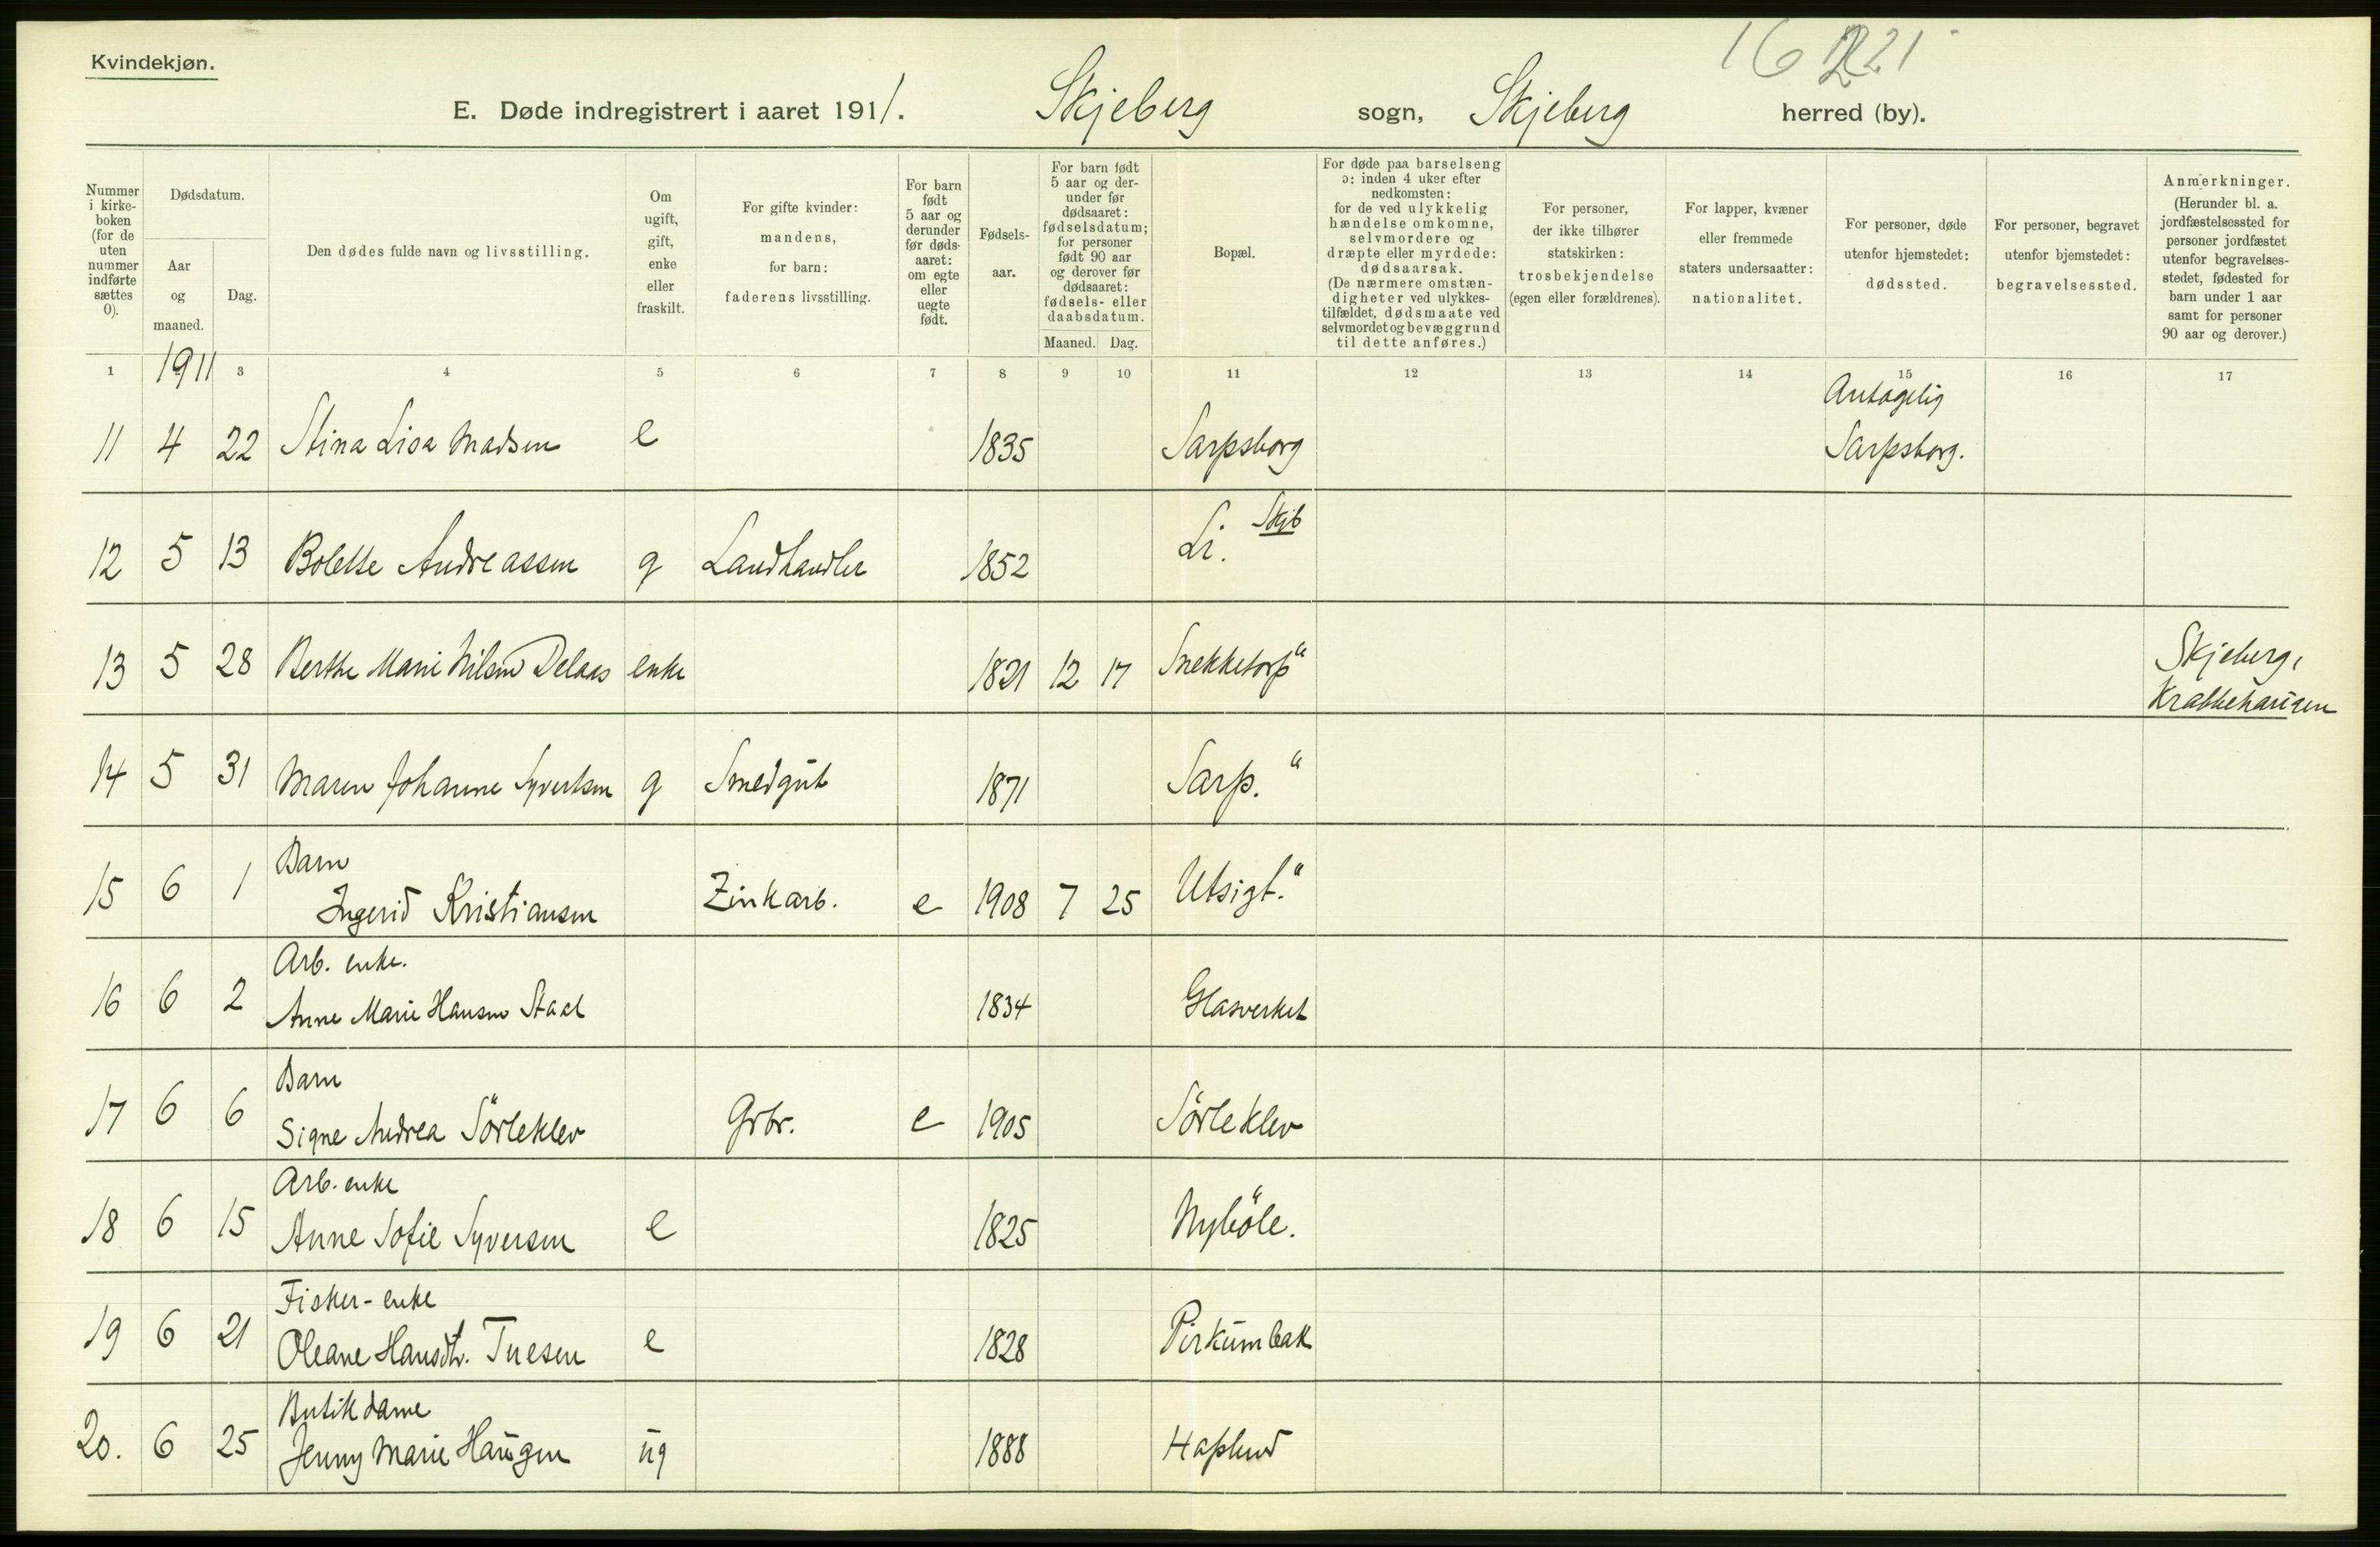 Kvindekjøn.
E. Døde indregistrert i aaret 1911. Skjeberg sogn, Skjeberg herred (by).
Nummer i kirkeboken (for de uten nummer indførte sættes 0).
Dødsdatum.
Aar og maaned.
Dag.
Den dødes fulde navn og livsstilling.
Om ugift, gift, enke eller fraskilt.
For gifte kvinder: mandens, for barn: faderens livsstilling.
For barn født 5 aar og derunder før dødsaaret: om egte eller uegte født.
Fødselsaar.
For barn født 5 aar og derunder før dødsaaret: fødselsdatum; for personer født 90 aar og derover før dødsaaret: fødsels- eller daabsdatum.
Maaned. Dag.
Bopæl.
For døde paa barselseng ɔ: inden 4 uker efter nedkomsten: for de ved ulykkelig hændelse omkomne, selvmordere og dræpte eller myrdede: dødsaarsak. (De nærmere omstændigheter ved ulykkestilfældet, dødsmaate ved selvmordet og bevæggrund til dette anføres.)
For personer, der ikke tilhører statskirken: trosbekjendelse (egen eller forældrenes).
For lapper, kvæner eller fremmede staters undersaatter: nationalitet.
For personer, døde utenfor hjemstedet: dødssted.
For personer, begravet utenfor bjemstedet: begravelsessted.
Anmerkninger. (Herunder bl. a. jordfæstelsessted for personer jordfæstet utenfor begravelsesstedet, fødested for barn under 1 aar samt for personer 90 aar og derover.)
1 1911 3 4 5 6 7 8 9 10 11 12 13 14 15 16 17
11 4 22 Stina Lisa Madsen e 1835 Sarpsborg Antagelig Sarpsborg.
12 5 13 Bolette Andreassen g Landhandler 1852 Li. Skjb
13 5 28 Berthe Marie Nilsen Delaas enke 1821 12 17 Snekketorp " Skjeberg, Krabbehaugen
14 5 31 Maren Johanne Syvertsen g Smedgut 1871 Sarp. "
15 6 1 Barn Ingerid Kristiansen Zinkarb. e 1908 7 25 Utsigt. "
16 6 2 Arb. enke. Anne Marie Hansen 1834 Glasverket
17 6 6 Barn Signe Andrea Sörleklev Grbr. e 1905 Sörleklev
18 6 15 Arb. enke Anne Sofie Syversen e 1825 Nyböle.
19 6 21 Fisker-enke Oleane Hansdtr. e 1828
20. 6 25 Butikdame Jenny Marie Haugen ug 1888 Haslund